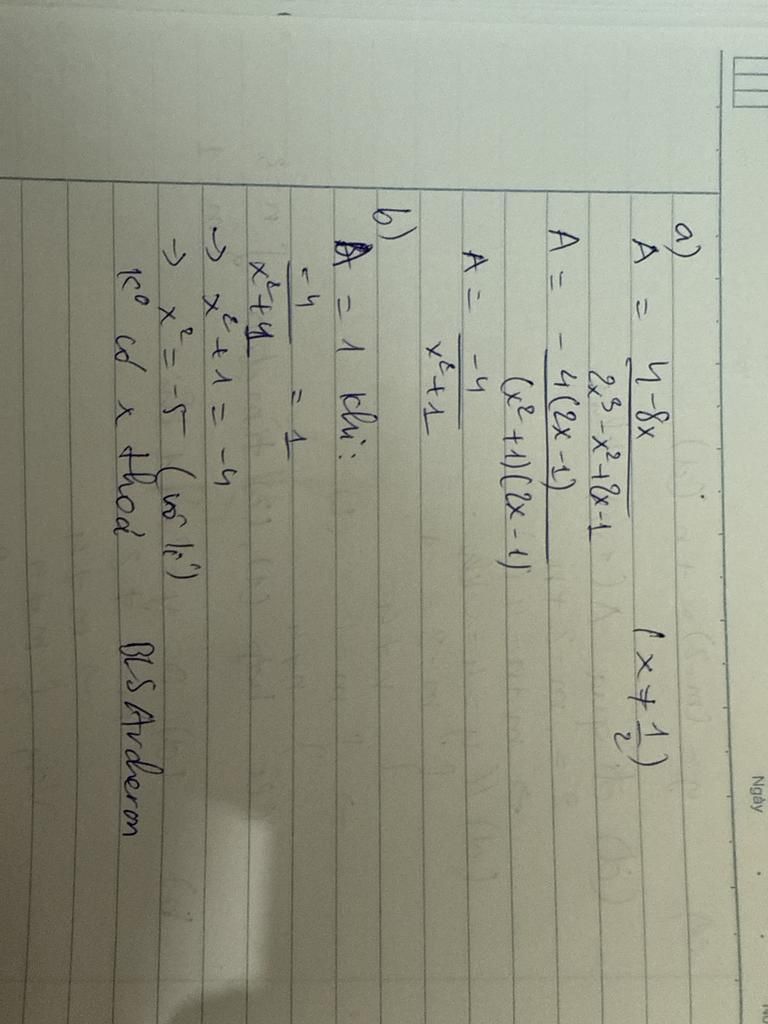 Ngày
a)
A = 4-8x / 2x³-x²+2x-1 (x ≠ 1/2)
A = -4(2x-1) / (x²+1)(2x-1)
A = -4 / x²+1
b)
A = 1 khi:
-4 / x²+1 = 1
→ x²+1 = -4
→ x² = -5 (vô lí)
k° có x thoả BLSArcherm